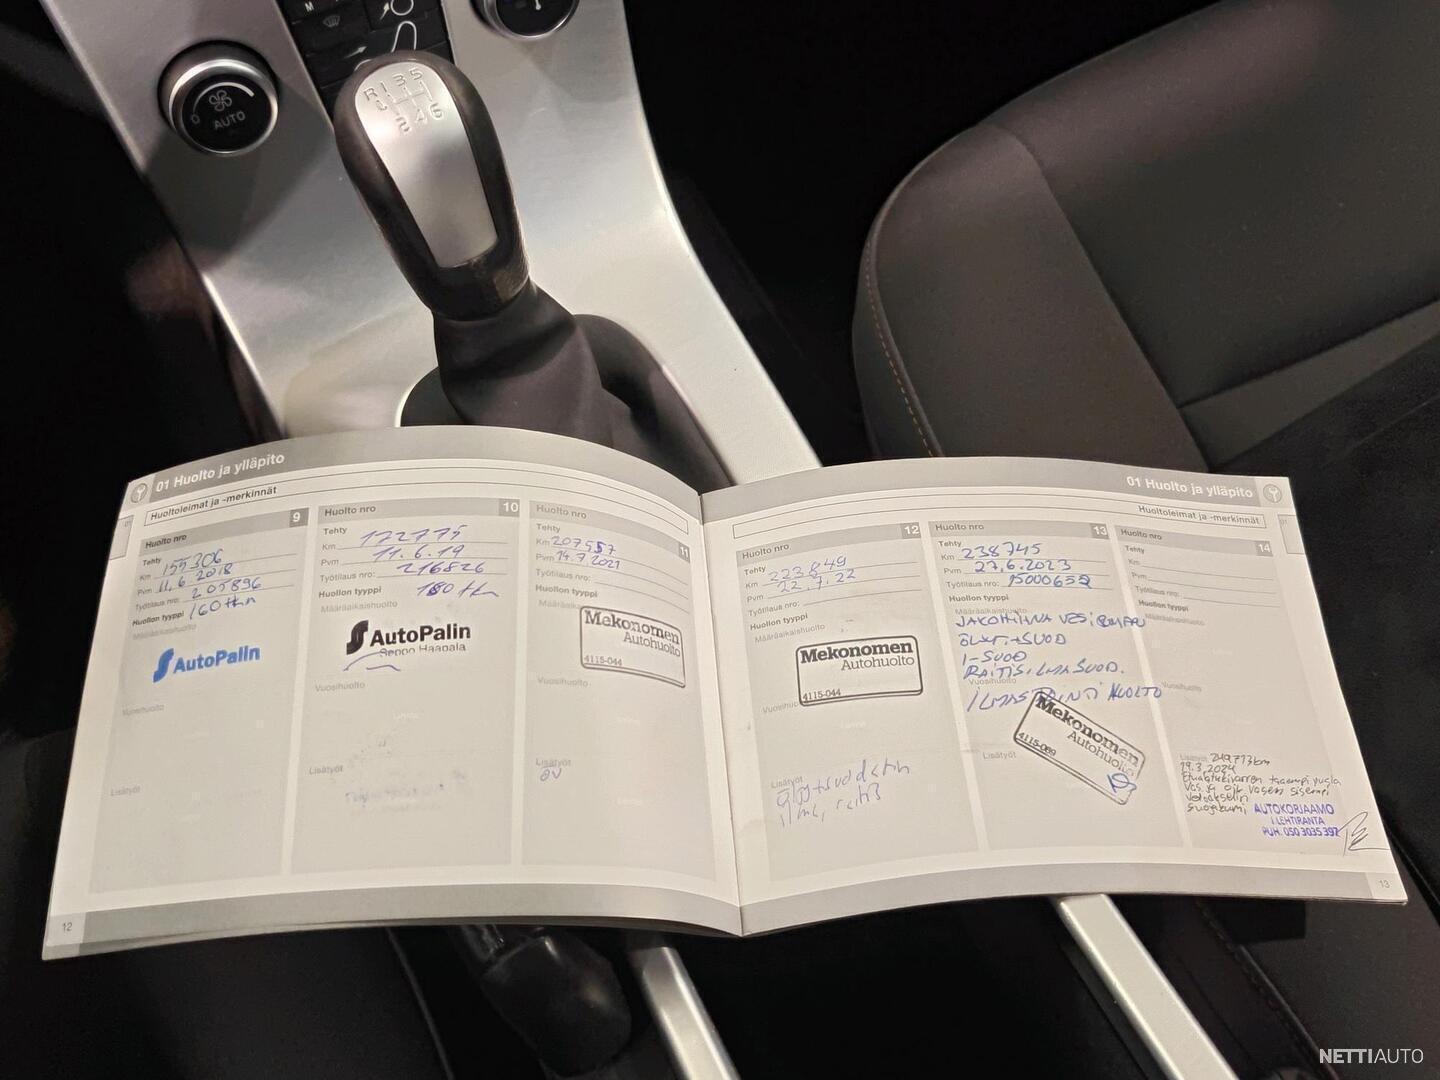 R 1 3 5
2 4 6
0 AUTO
01 Huolto ja ylläpito
Huoltoleimat ja -merkinnät
Huolto nro 9
Tehty
Km 155306
Pvm 11.6.2018
Työtilaus nro: 205896
Huollon tyyppi 160 tkm
Määräaikaishuolto
AutoPalin
Vuosihuolto
Lisätyöt
Huolto nro 10
Tehty
Km 172775
Pvm 11.6.19
Työtilaus nro: 216826
Huollon tyyppi 180 tkm
Määräaikaishuolto
AutoPalin
Seppo Haapala
Vuosihuolto
Lisätyöt
Huolto nro 11
Tehty
Km 207557
Pvm 14.7.2021
Työtilaus nro:
Huollon tyyppi
Määräaikaishuolto
Mekonomen
Autohuolto
4115-044
Vuosihuolto
Lisätyöt
12
01 Huolto ja ylläpito
Huoltoleimat ja -merkinnät
Huolto nro 12
Tehty
Km 223849
Pvm 22.7.22
Työtilaus nro:
Huollon tyyppi
Määräaikaishuolto
Mekonomen
Autohuolto
4115-044
Vuosihuolto
Lisätyöt
Huolto nro 13
Tehty
Km 238745
Pvm 27.6.2023
Työtilaus nro: 15000652
Huollon tyyppi
Määräaikaishuolto
JAKOHIHNA VESIPUMPPU
ÖLJYT+SUOD
I-SUOD
RAITISILMASUOD.
Vuosihuolto
ILMASTOINTI HUOLTO
Mekonomen
Autohuolto
4115-069
Lisätyöt
Huolto nro 14
Tehty
Km
Pvm
Työtilaus nro:
Huollon tyyppi
Määräaikaishuolto
Vuosihuolto
Lisätyöt 249773km
19.3.2024
Etualatukivarren taaempi pusla
vas ja oik vasen sisempi
vetoakselin
suojakumi AUTOKORJAAMO
I. LEHTIRANTA
PUH. 050 3035 397
13
NETTIAUTO